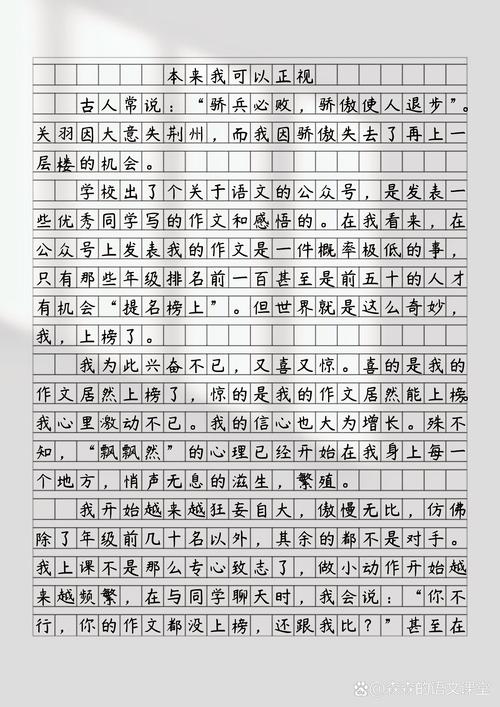 本来我可以正视
古人常说：“骄兵必败，骄傲使人退步”。
关羽因大意失荆州，而我因骄傲失去了再上一
层楼的机会。
学校出了个关于语文的公众号，是发表一
些优秀同学写的作文和感悟的。在我看来，在
公众号上发表我的作文是一件概率极低的事，
只有那些年级排名前一百甚至是前五十的人才
有机会“提名榜上”。但世界就是这么奇妙，
我，上榜了。
我为此兴奋不已，又喜又惊。喜的是我的
作文居然上榜了，惊的是我的作文居然能上榜
我心里激动不已。我的信心也大为增长。殊不
知，“飘飘然”的心理已经开始在我身上每一
个地方，悄声无息的滋生，繁殖。
我开始越来越狂妄自大，傲慢无比，仿佛
除了年级前几十名以外，其余的都不是对手。
我上课不是那么专心致志了，做小动作开始越
来越频繁，在与同学聊天时，我会说：“你不
行，你的作文都没上榜，还跟我比？”甚至在
Baidu百科 @森森的语文课堂